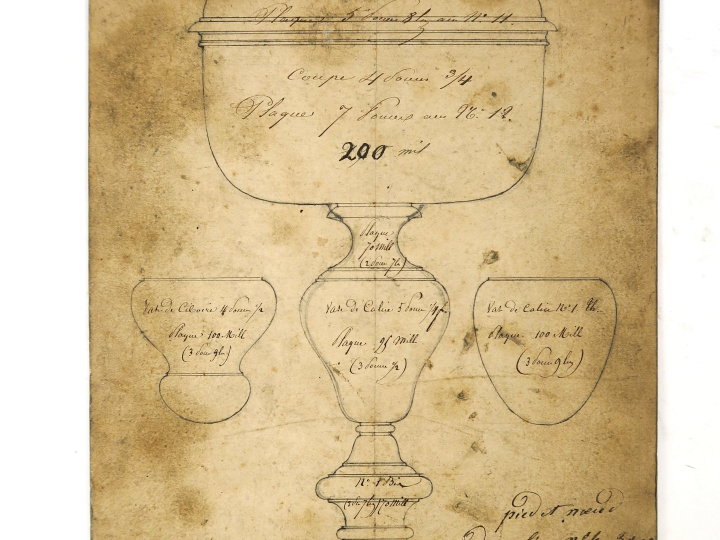 Plaque 5 Pouces 8 lig au N° 11.
Coupe 4 Pouces 3/4
Plaque 7 Pouces au N° 12.
200 mil
Plaque
70 Mill
(2 Pouce 7 lig)
Vase de Ciboire 4 Pouce 1/2
Plaque 100 Mill
(3 Pouce 9 lig)
Vase de Calice 5 Pouce 1/4
Plaque 95 Mill
(3 Pouce 1/2)
Vase de Calice N° 1.
Plaque 100 Mill
(3 Pouce 9 lig)
N° 1
70 Mill
pied et nœud